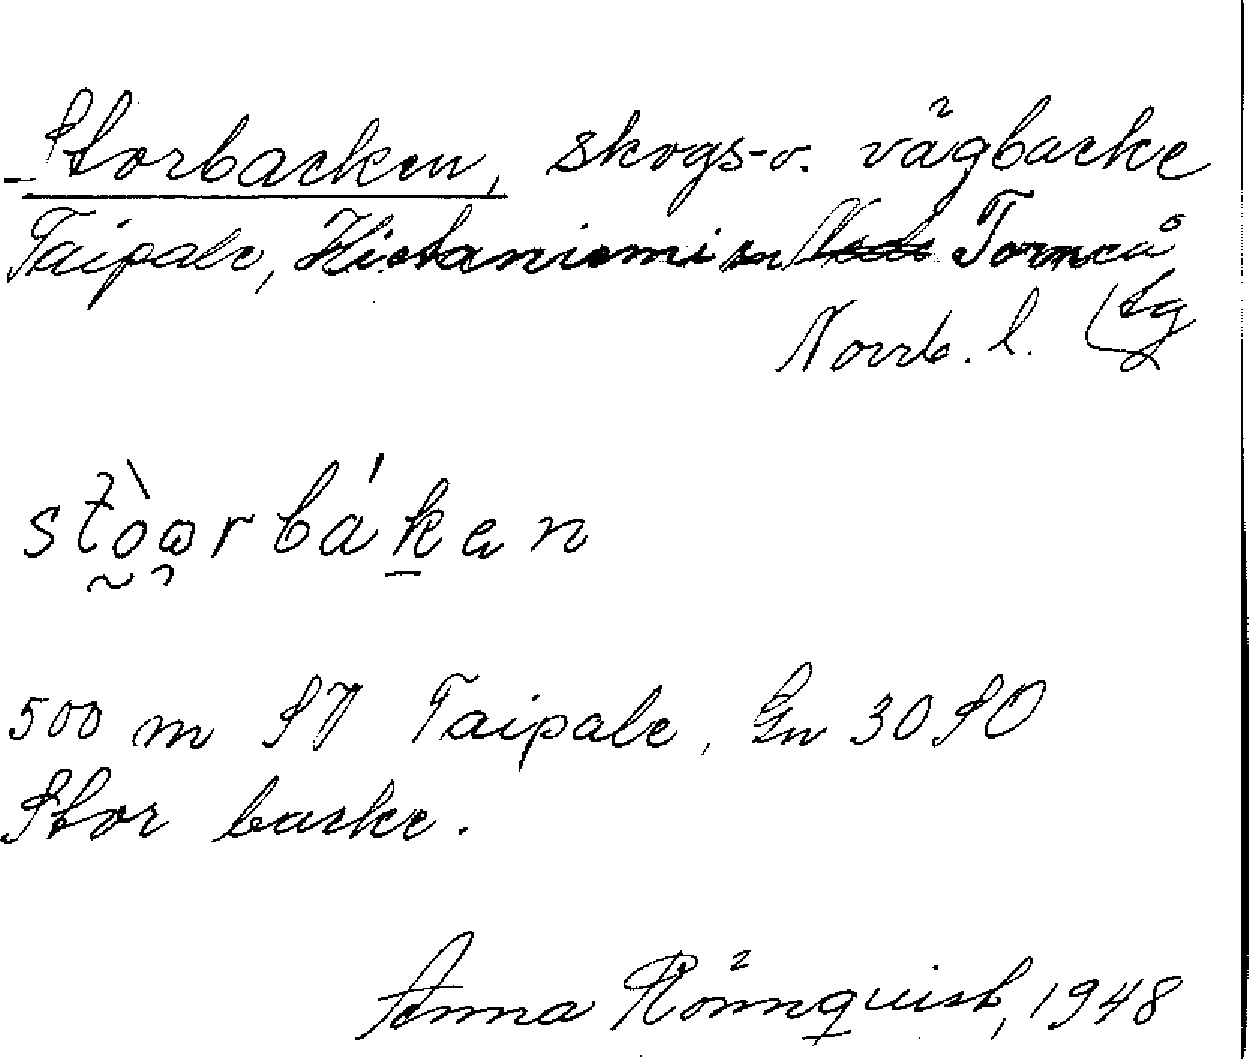 Storbacken, skogs- o. vägbacke
Taipale, Hietaniemi sn Torneå
Norrb. l. tg
stòọrbákan
500 m SV Taipale, Gn 30 SO
Stor backe.
Anna Rönnquist, 1948